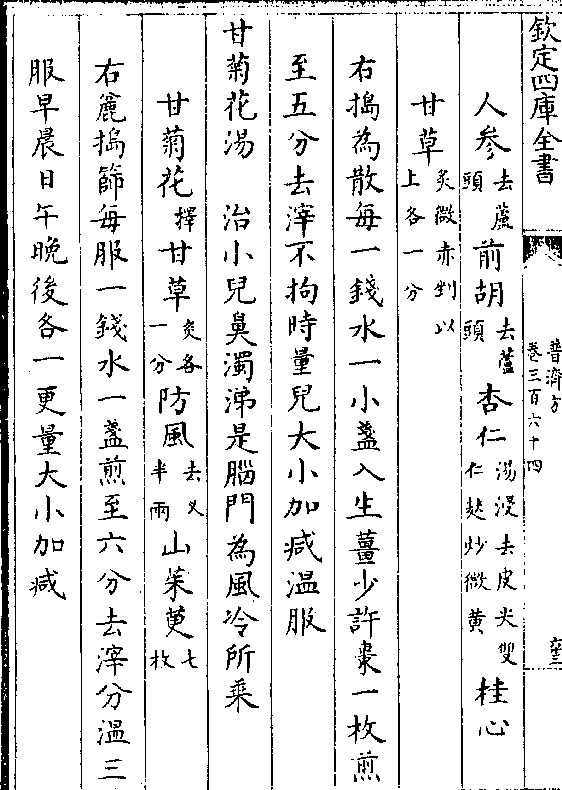 欽定四庫全書
普濟方
卷三百六十四
人參去蘆頭前胡去蘆頭杏仁湯浸去皮尖雙仁麩炒微黄桂心
甘草炙微赤剉以上各一分
右搗為散每一錢水一小盞入生薑少許棗一枚煎
至五分去滓不拘時量兒大小加减温服
甘菊花湯　治小兒鼻濁涕是腦門為風冷所乘
甘菊花擇甘草炙各一分防風去叉半兩山茱萸七枚
右麄搗篩每服一錢水一盞煎至六分去滓分温三
服早晨日午晚後各一更量大小加减